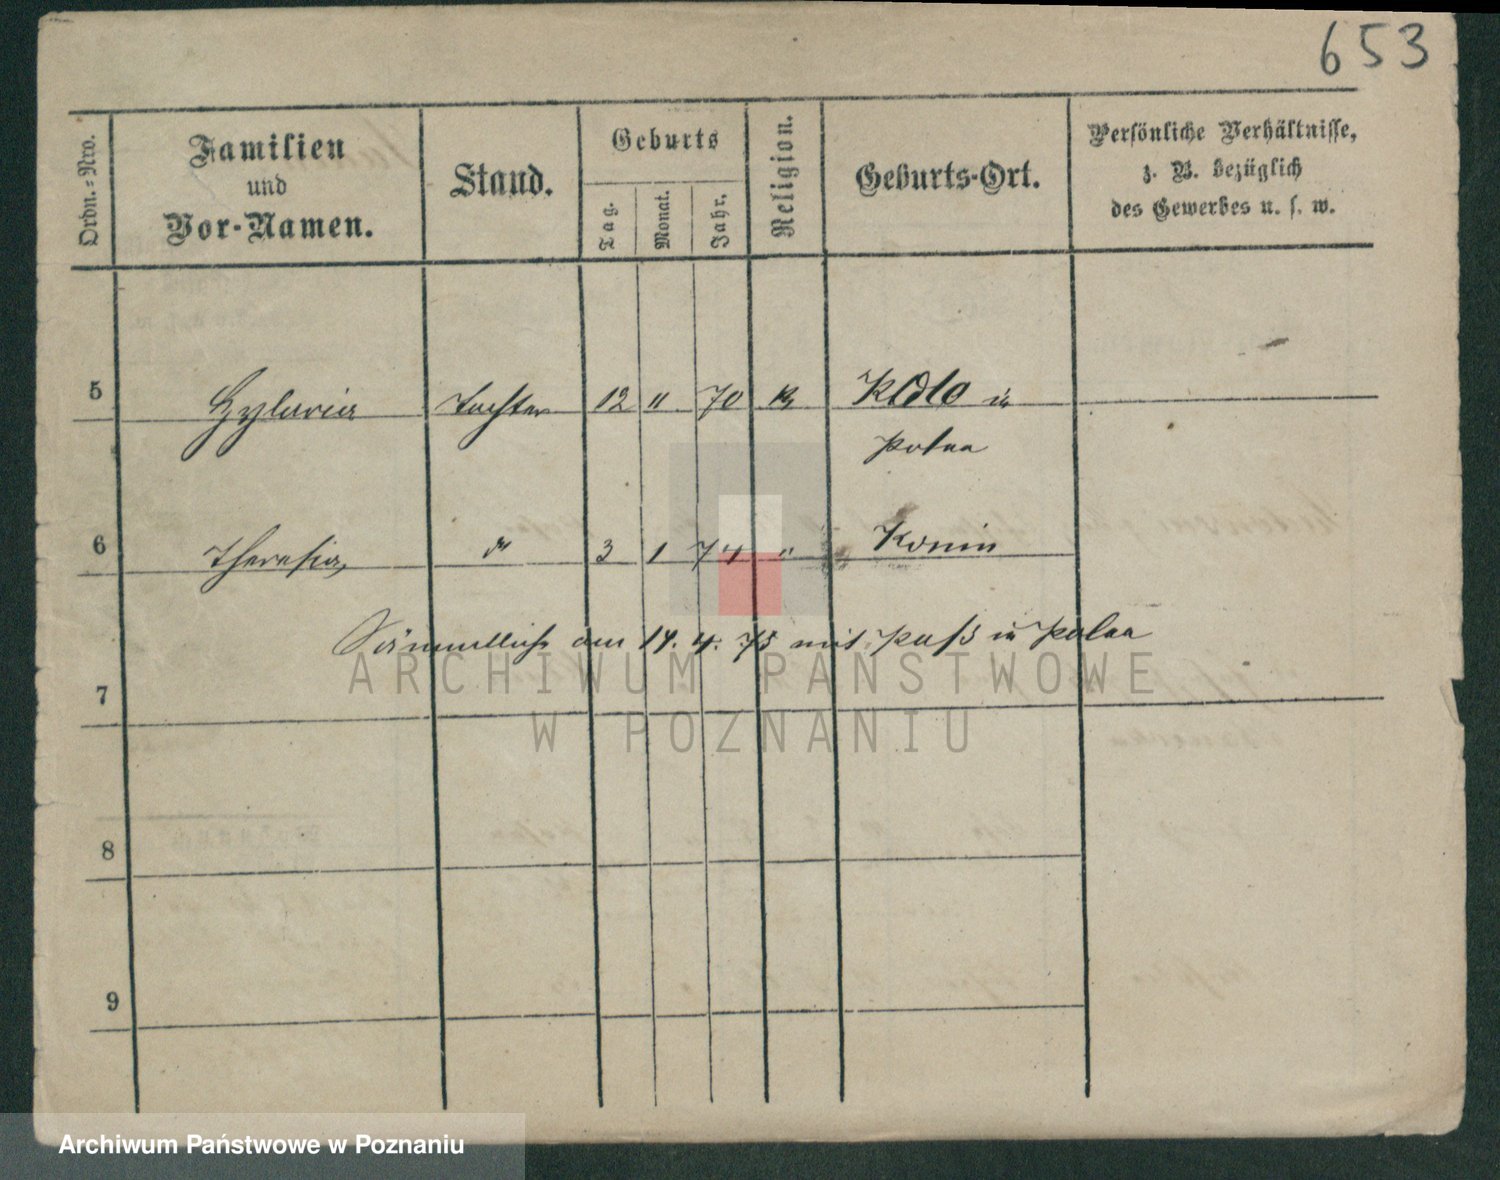 653
Ordn.=Nro.
Familien
und
Vor-Namen.
Stand.
Geburts
Tag.
Monat.
Jahr.
Religion.
Geburts-Ort.
Persönliche Verhältnisse,
z. B. bezüglich
des Gewerbes u. s. w.
5 Hylaria Tochter 12 " 70 K Koło in
Polen
6 Theresia do 3 1 74 " Konin
Sämmtlich am 14. 4. 75 mit Paß in Polen
7
8
9
ARCHIWUM PAŃSTWOWE
W POZNANIU
Archiwum Państwowe w Poznaniu